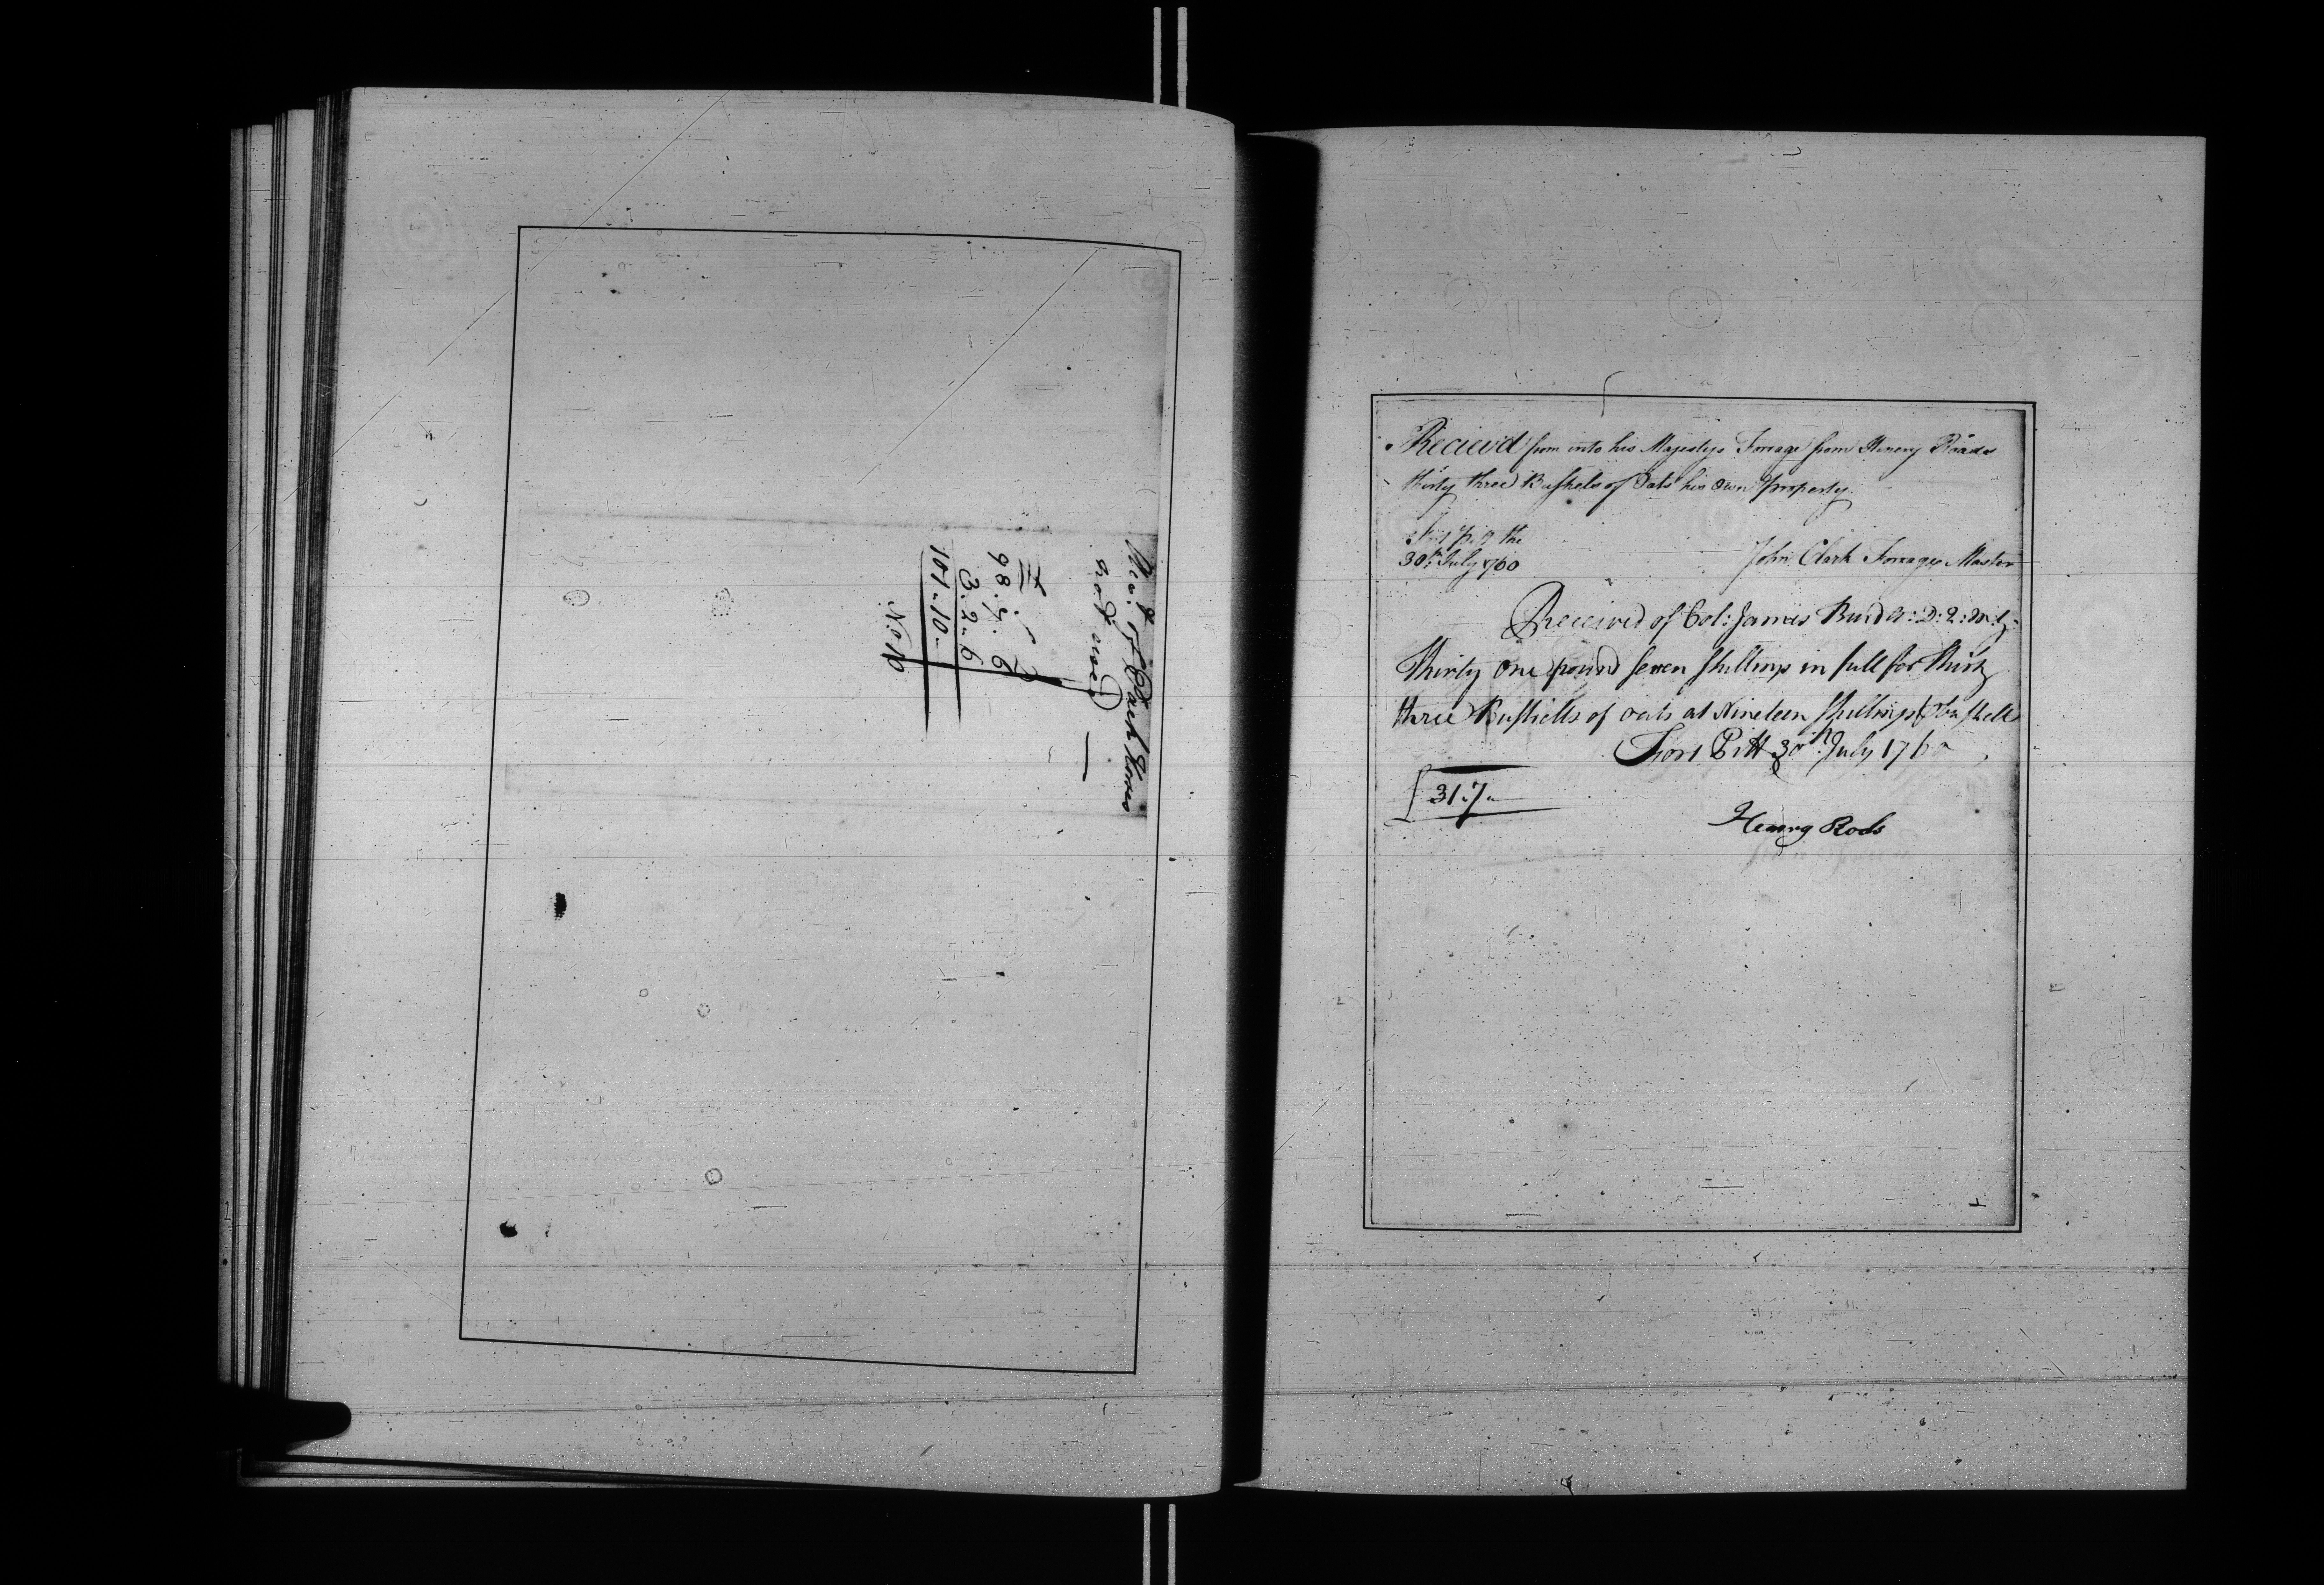 Acct. of Pack Horses
not used
98 . 7 . 6
3 . 2 . 6
101 . 10 .
No. 10
Recieved from into his Majestys Forrage from Henery Roads
thirty three Bushels of Oats his Own property
the
30th July 1760
John Clark Forrage Master
Received of Col: James Burd A: D: Q: M: G:
Thirty One pound seven shillings in full for thirty
three Bushells of oats at Nineteen shillings p bushell
Fort Pitt 30th July 1760
£ 31 . 7 .
Henry Rods